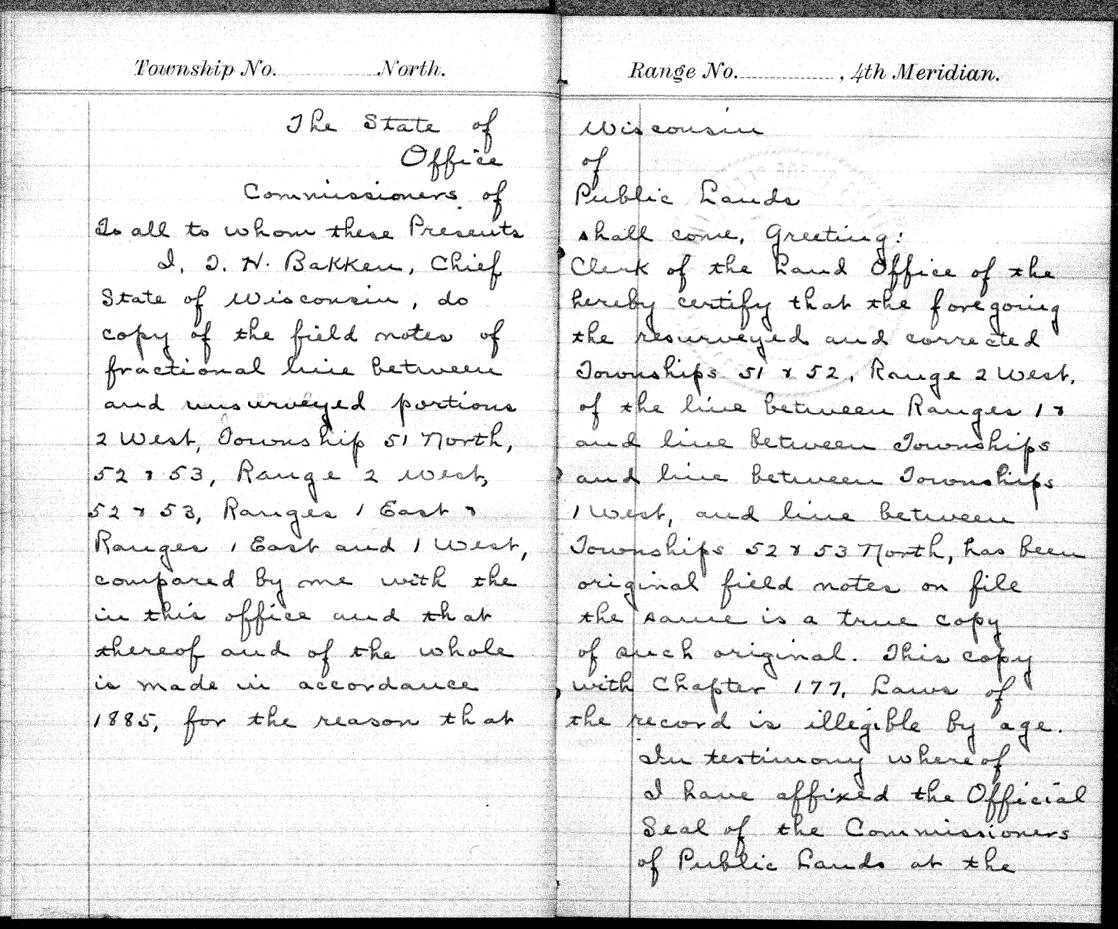 Township No. North. Range No. , 4th Meridian.
The State of Wisconsin
Office of
Commissioners of Public Lands
To all to whom these Presents shall come, Greeting:
I, T. H. Bakken, Chief Clerk of the Land Office of the
State of Wisconsin, do hereby certify that the foregoing
copy of the field notes of the resurveyed and corrected
fractional line between Townships 51 & 52, Range 2 West,
and unsurveyed portions of the line between Ranges 1 &
2 West, Township 51 North, and line between Townships
52 & 53, Range 2 West, and line between Townships
52 & 53, Ranges 1 East & 1 West, and line between
Ranges 1 East and 1 West, Townships 52 & 53 North, has been
compared by me with the original field notes on file
in this office and that the same is a true copy
thereof and of the whole of such original. This copy
is made in accordance with Chapter 177, Laws of
1885, for the reason that the record is illegible by age.
In testimony whereof
I have affixed the Official
Seal of the Commissioners
of Public Lands at the